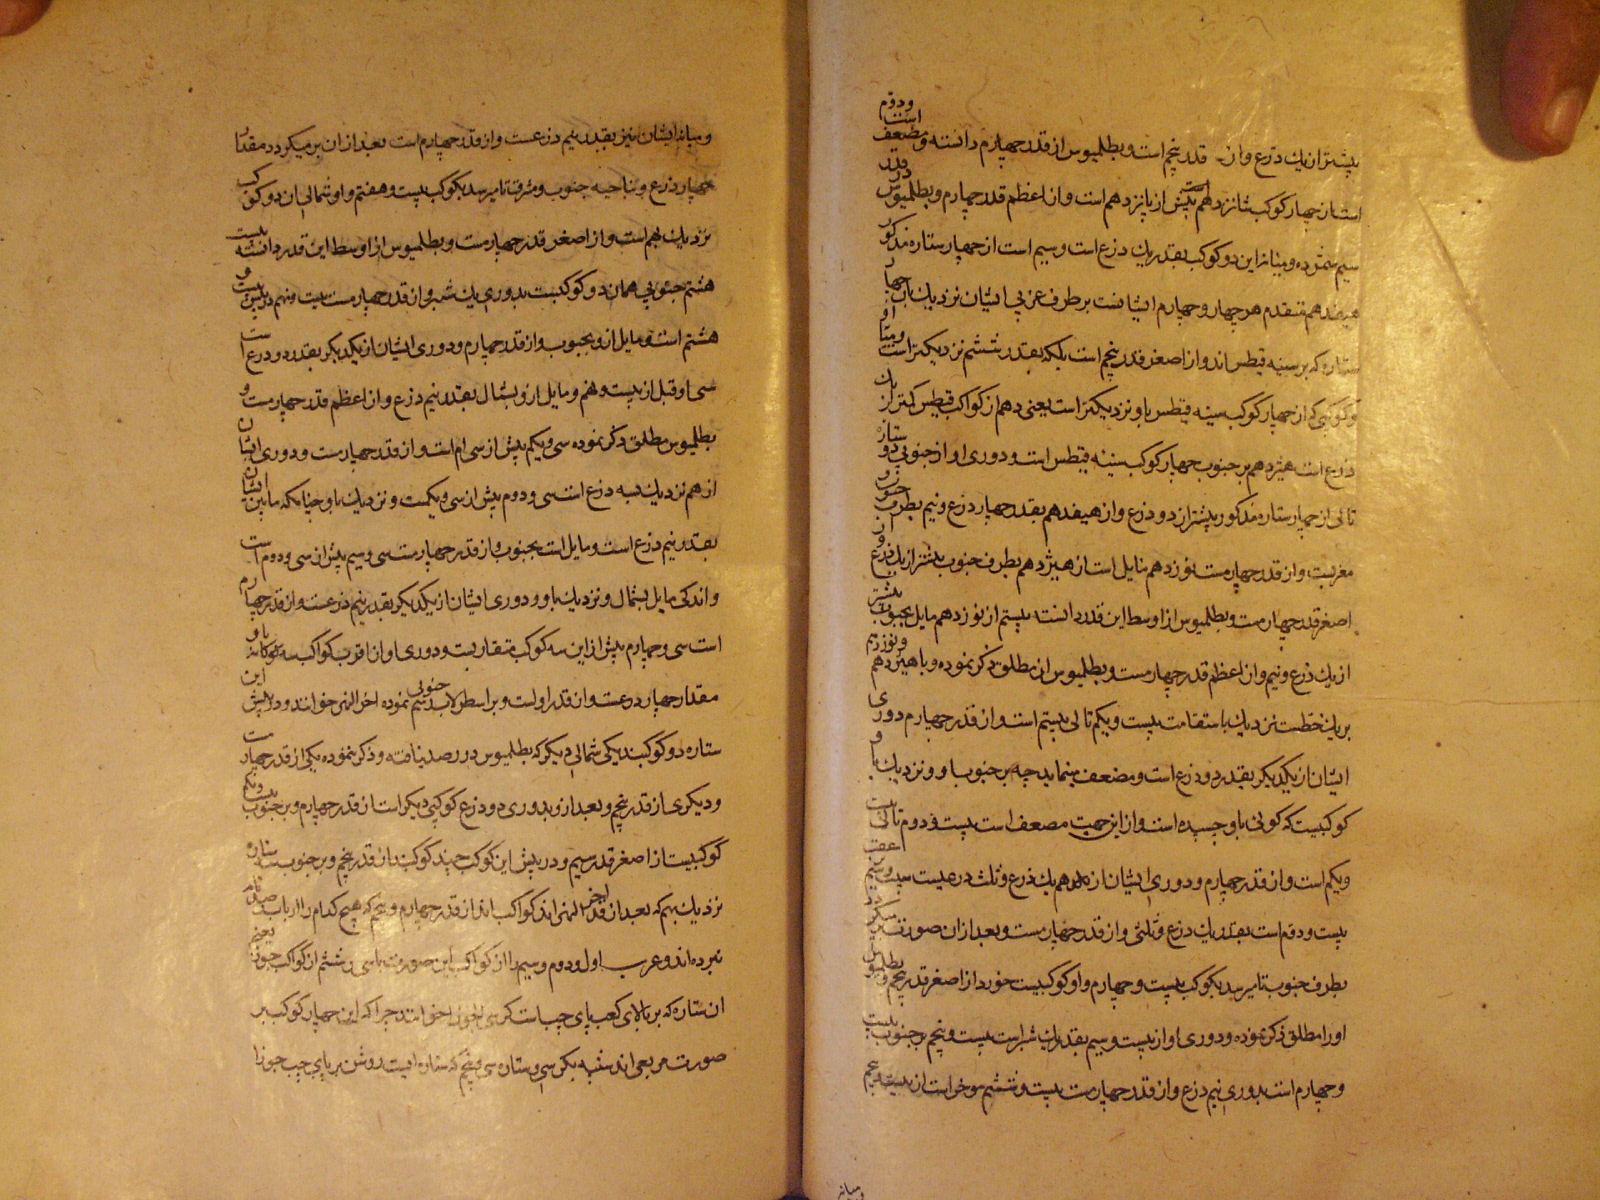 پیشتر از یک ذرع و از قدر پنجم است و بطلمیوس از قدر چهارم دانسته و مضعف است ودوم
است از چهار کوکب شانزدهم پیش از پانزدهم است و از اعظم قدر چهارم و بطلمیوس در قدر
سیم شمرده و میانه این دو کوکب بقدر یک ذرع است و سیم است از چهار ستاره مذکور
هیفدهم متقدم هر چهار و چهارم ایشانست بر طرف غربی ایشان نزدیک باب چهار
ستاره که بر سینه قیطس اند و از اصغر قدر پنجم است بلکه بقدر ششم نزدیکتر است ومیان او
و کوکبی که از چهار کوکب سینه قیطس باو نزدیکتر است یعنی دهم از کواکب قیطس کمتر از یک
ذرع است هیژدهم بر جنوب چهار کوکب سینه قیطس است و دوری او از جنوبی دو ستاره
تالی از چهار ستاره مذکور پیشتر از دو ذرع و از هیفدهم بقدر چهار ذرع و نیم بطرف جنوب
مغربست و از قدر چهارمست نوزدهم مایل است از هیژدهم بطرف جنوب بیشتر از یک ذرع و از
اصغر قدر چهارمست و بطلمیوس از اوسط این قدر دانسته بیستم از نوزدهم مایل بجنوب بیشتر
از یک ذرع و نیم و از اعظم قدر چهارمست و بطلمیوس از مطلق ذکر نموده و با هیژدهم و نوزدهم
بر یک خطست نزدیک باستقامت بیست و یکم تالی بیستم است و از قدر چهارم دوری
ایشان از یکدیگر بقدر دو ذرع است و مضعف مینماید چه بر جنوب او و نزدیک باو
کوکبیست که گوئی باو چسپیده است و از این جهت مضعف است بیست و دوم تالی بیست
ویکم است و از قدر چهارم و دوری ایشان از هم یک ذرع و ثلث ذرعیست بیست و سیم اعقب
بیست و دوم است بقدر یک ذرع و ثلثی و از قدر چهارمست و بعد از ان صورت میگردد
بطرف جنوب تا میرسد بکوکب بیست و چهارم و او کوکبیست خورد از اصغر قدر پنجم و بطلمیوس
او را مطلق ذکر نموده و دوری او از بیست و سیم بقدر یک شبراست بیست و پنجم بر جنوب بیست
و چهارم است بدوری نیم ذرع و از قدر چهارمست بیست و ششم موخر است از بیست و پنجم
ومیانه
و میانه ایشان نیز بقدر نیم ذرعست و از قدر چهارم است بعد از ان بر میگردد مقدار
چهار ذرع و بناحیه جنوب و مشرق تا میرسد بکوکب بیست و هفتم و او شمالی ان دو کوکب
نزدیک بهم است و از اصغر قدر چهارمست و بطلمیوس از اوسط این قدر دانسته بیست
هشتم جنوبی همان دو کوکبست بدوری یک شبر و از قدر چهارمست بیست و نهم در پیش بیست و
هشتم است و مایل از و بجنوب و از قدر چهارم و دوری ایشان از یکدیگر بقدر دو ذرع است
سی ام قبل از بیست و نهم و مایل از و بشمال بقدر نیم ذرع و از اعظم قدر چهارمست و
بطلمیوس مطلق ذکر نموده سی و یکم پیش از سی ام است و از قدر چهارمست و دوری ایشان
از هم نزدیک بسه ذرع است سی و دوم پیش از سی و یکمست و نزدیک باو چنانکه ما بین ایشان
بقدر نیم ذرع است و مایل است بجنوب و از قدر چهارمست سی وسیم پیش از سی و دوم است
و اندکی مایل بشمال و نزدیک باو و دوری ایشان از یکدیگر بقدر نیم ذرعست و از قدر چهارم
است سی و چهارم پیش از این سه کوکب متقاربست و دوری او از اقرب کواکب سه گوکانه باو
مقدار چهار ذرعست و از قدر اولست و بر اسطرلاب جنوبی رسم نموده اخر النهر خوانند و در پیش این
ستاره دو کوکبند یکی شمالی دیگر که بطلمیوس در رصد نیافته و ذکر ننموده یکی از قدر چهارمست
و دیگری از قدر پنجم و بعد از و بدوری دو ذرع کوکبی دیگر است از قدر چهارم و بر جنوب بیست و یکم
کوکبیست از اصغر قدر سیم و در پیش این کوکب چند کوکبند از قدر پنجم و بر جنوب ستاره
نزدیک بهم که بعد از اخر النهر اند کواکب اند از قدر چهارم و پنجم که هیچ کدام را ارباب رصد نام
نبرده اند و عرب اول و دوم و سیم را از کواکب این صورت با سی و ششم از کواکب جوزا یعنی
ان ستاره که بر بالای کعب پای چپ است کرسی الجوزا خوانند چرا که این چهار کوکب بر
صورت مربعی اند شبیه بکرسی و ستاره سی و پنجم که ستاره ایست روشن بر پای چپ جوزا